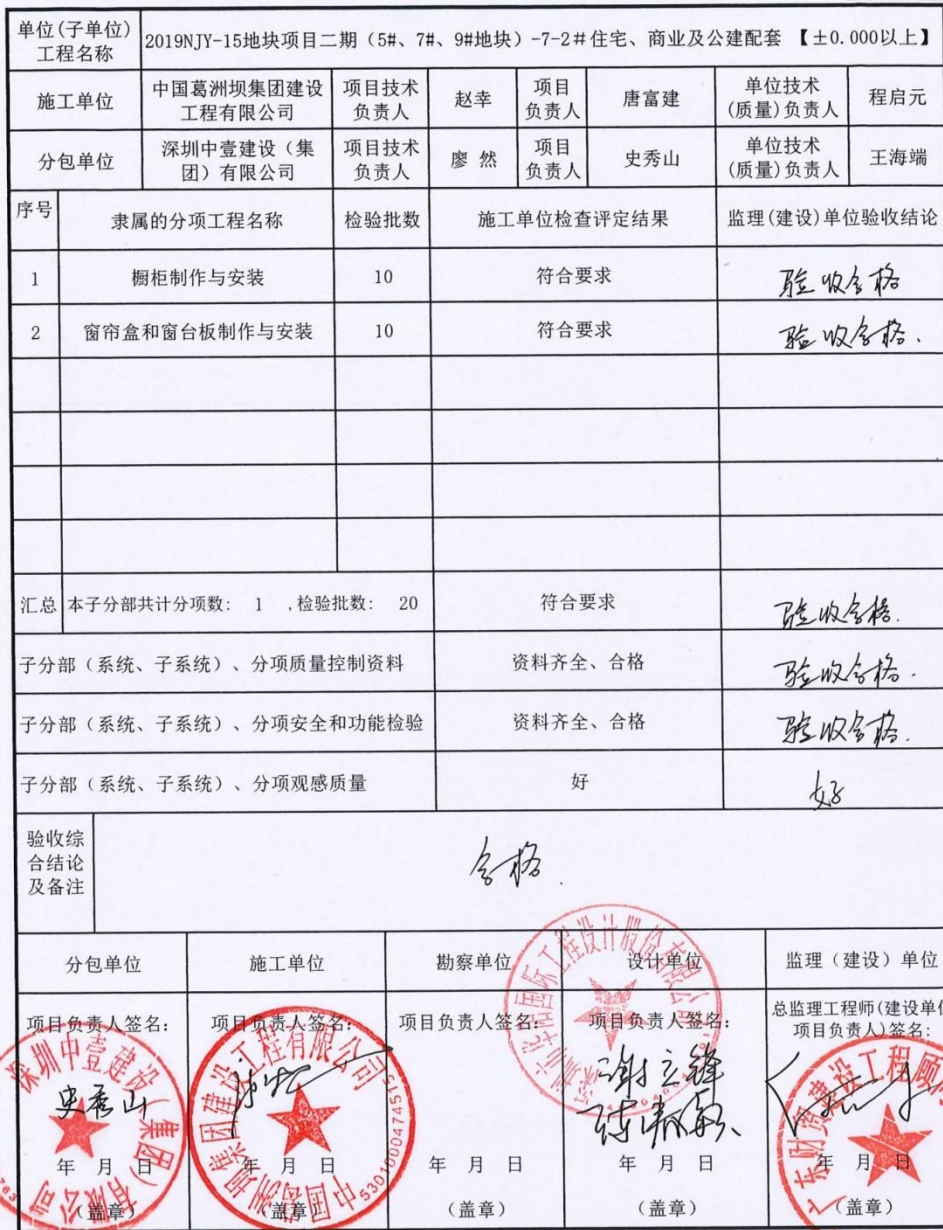 单位(子单位)
工程名称
2019NJY-15地块项目二期（5#、7#、9#地块）-7-2#住宅、商业及公建配套 【±0.000以上】
施工单位
中国葛洲坝集团建设
工程有限公司
项目技术
负责人
赵幸
项目
负责人
唐富建
单位技术
(质量)负责人
程启元
分包单位
深圳中壹建设（集
团）有限公司
项目技术
负责人
廖 然
项目
负责人
史秀山
单位技术
(质量)负责人
王海端
序号
隶属的分项工程名称
检验批数
施工单位检查评定结果
监理(建设)单位验收结论
1
橱柜制作与安装
10
符合要求
验收合格
2
窗帘盒和窗台板制作与安装
10
符合要求
验收合格.
汇总
本子分部共计分项数: 1 ,检验批数: 20
符合要求
验收合格.
子分部（系统、子系统）、分项质量控制资料
资料齐全、合格
验收合格.
子分部（系统、子系统）、分项安全和功能检验
资料齐全、合格
验收合格.
子分部（系统、子系统）、分项观感质量
好
好
验收综
合结论
及备注
合格.
分包单位
施工单位
勘察单位
设计单位
监理（建设）单位
项目负责人签名:
项目负责人签名:
项目负责人签名:
项目负责人签名:
总监理工程师(建设单位
项目负责人)签名:
深圳中壹建设（集团）有限公司
史秀山
中国葛洲坝集团建设工程有限公司
5301000474515
谢立锋
年 月 日
年 月 日
年 月 日
年 月 日
年 月 日
（盖章）
（盖章）
（盖章）
（盖章）
（盖章）